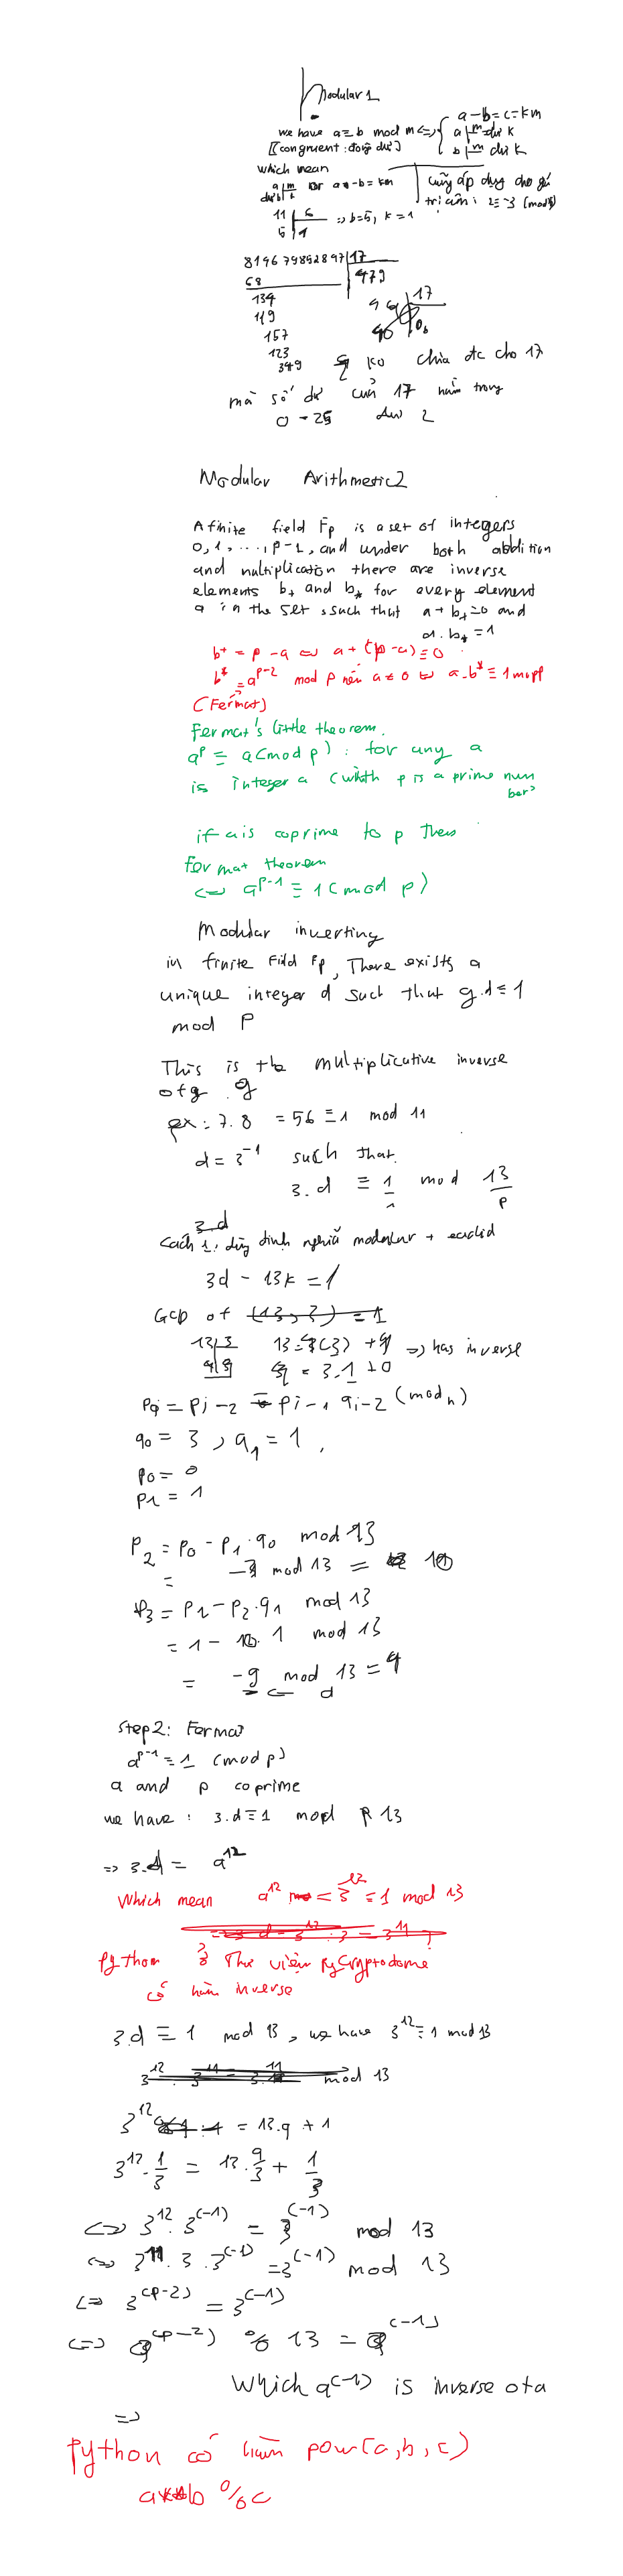 Modular 1
a - b = c = km
we have a ≡ b mod m <=> { a | m dư k
[[congruent : đồng dư] b | m dư k
which mean
a | m or a - b = km
dư b | k
cũng áp dụng cho giá
trị âm : 2 ≡ -3 (mod 5)
11 | 6 => b=5, k = 1
5 | 1
8196 79852897 | 17
68 479
134
119
157
123
349
17
ko chia đc cho 17
mà số dư của 17 nằm trong
0 - 25 dư 2
Modular Arithmetic 2
A finite field Fp is a set of integers
0, 1, ..., p-1, and under both abdition
and multiplication there are inverse
elements b+ and b* for every element
a in the set, such that a + b+ = 0 and
a . b* = 1
b+ = p - a <=> a + (p - a) ≡ 0
b* = a^(p-2) mod p nếu a ≠ 0 <=> a . b* ≡ 1 mod p
(Fermat)
Fermat's little theorem.
a^p ≡ a (mod p) : for any a
is integer a (with p is a prime num
ber)
if a is coprime to p then
fermat theorem
<=> a^(p-1) ≡ 1 (mod p)
Modular inverting
in finite Field Fp, There exists a
unique integer d such that g.d ≡ 1
mod P
This is the multiplicative inverse
of g . g
ex : 7.8 = 56 ≡ 1 mod 11
d = 3^-1 such that
3.d ≡ 1 mod 13
1 p
3.d
Cách 1: dùng định nghĩa modular + euclid
3d - 13k = 1
GCD of (13, 3) = 1
13 | 3 13 = 4(3) + 1 => has inverse
= 3.1 + 0
Pi = Pi-2 - Pi-1 qi-2 (mod n)
q0 = 3, q1 = 1,
p0 = 0
p1 = 1
P2 = P0 - P1.q0 mod 13
= -3 mod 13 = 10
P3 = P1 - P2.q1 mod 13
= 1 - 10.1 mod 13
= -9 mod 13 = 4
<= d
Step 2: Fermat
a^(p-1) ≡ 1 (mod p)
a and p coprime
we have : 3.d ≡ 1 mod p 13
=> 3.d = a^12
Which mean a^12 = 3^12 ≡ 1 mod 13
Python ? Thư viện PyCryptodome
có hàm inverse
3.d ≡ 1 mod 13, we have 3^12 ≡ 1 mod 13
mod 13
3^12 = 13.q + 1
3^12 . 1/3 = 13 . q/3 + 1/3
<=> 3^12 . 3^(-1) = 3^(-1) mod 13
<=> 3^11 . 3 . 3^(-1) = 3^(-1) mod 13
<=> 3^(p-2) = 3^(-1)
<=> a^(p-2) % 13 = a^(-1)
Which a^(-1) is inverse of a
=>
Python có hàm pow(a, b, c)
a**b % c